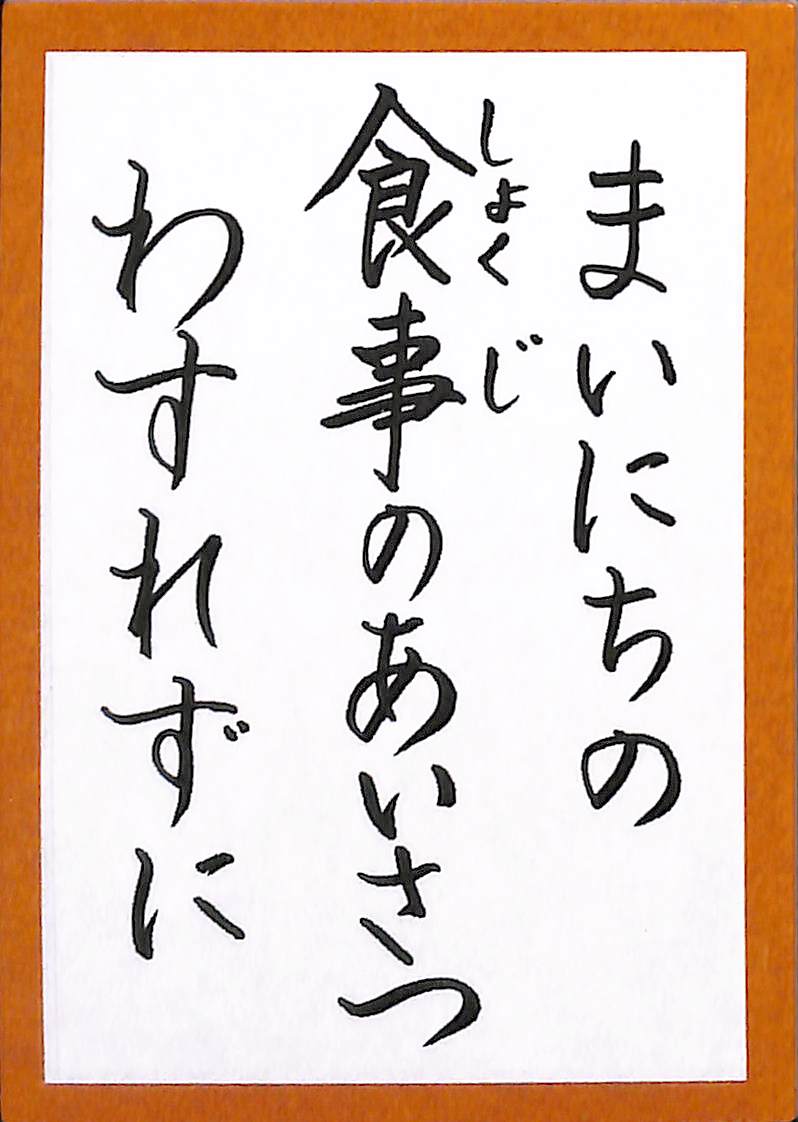 まいにちの
食事のあいさつ
しょくじ
わすれずに